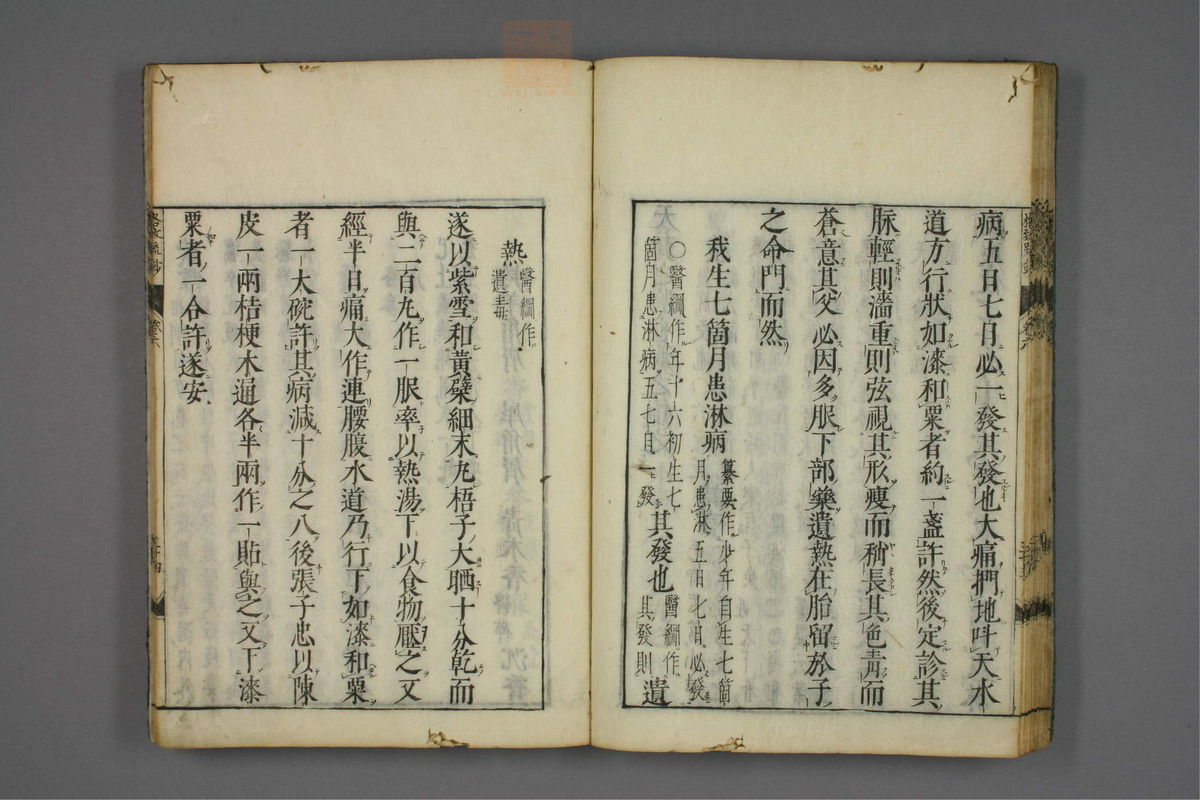 病五日七日必一發其發也大痛捫地叫天水
道方行狀如漆和粟者約一盞許然後定診其
脉輕則濇重則弦視其形瘦而稍長其色青而
蒼意其父必因多服下部藥遺熱在胎留於子
之命門而然
我生七箇月患淋病 纂要作少年自生七箇
月患淋五日七日必發
〇醫綱作年十六初生七
箇月患淋病五七日一發 其發也 醫綱作
其發則 遺
熱 醫綱作
遺毒
遂以紫雪和黃蘗細末丸梧子大晒十分乾而
與二百丸作一服率以熱湯下以食物壓之又
經半日痛大作連腰腹水道乃行下如漆和粟
者一大碗許其病減十分之八後張子忠以陳
皮一兩桔梗木通各半兩作一貼與之又下漆
粟者一合許遂安